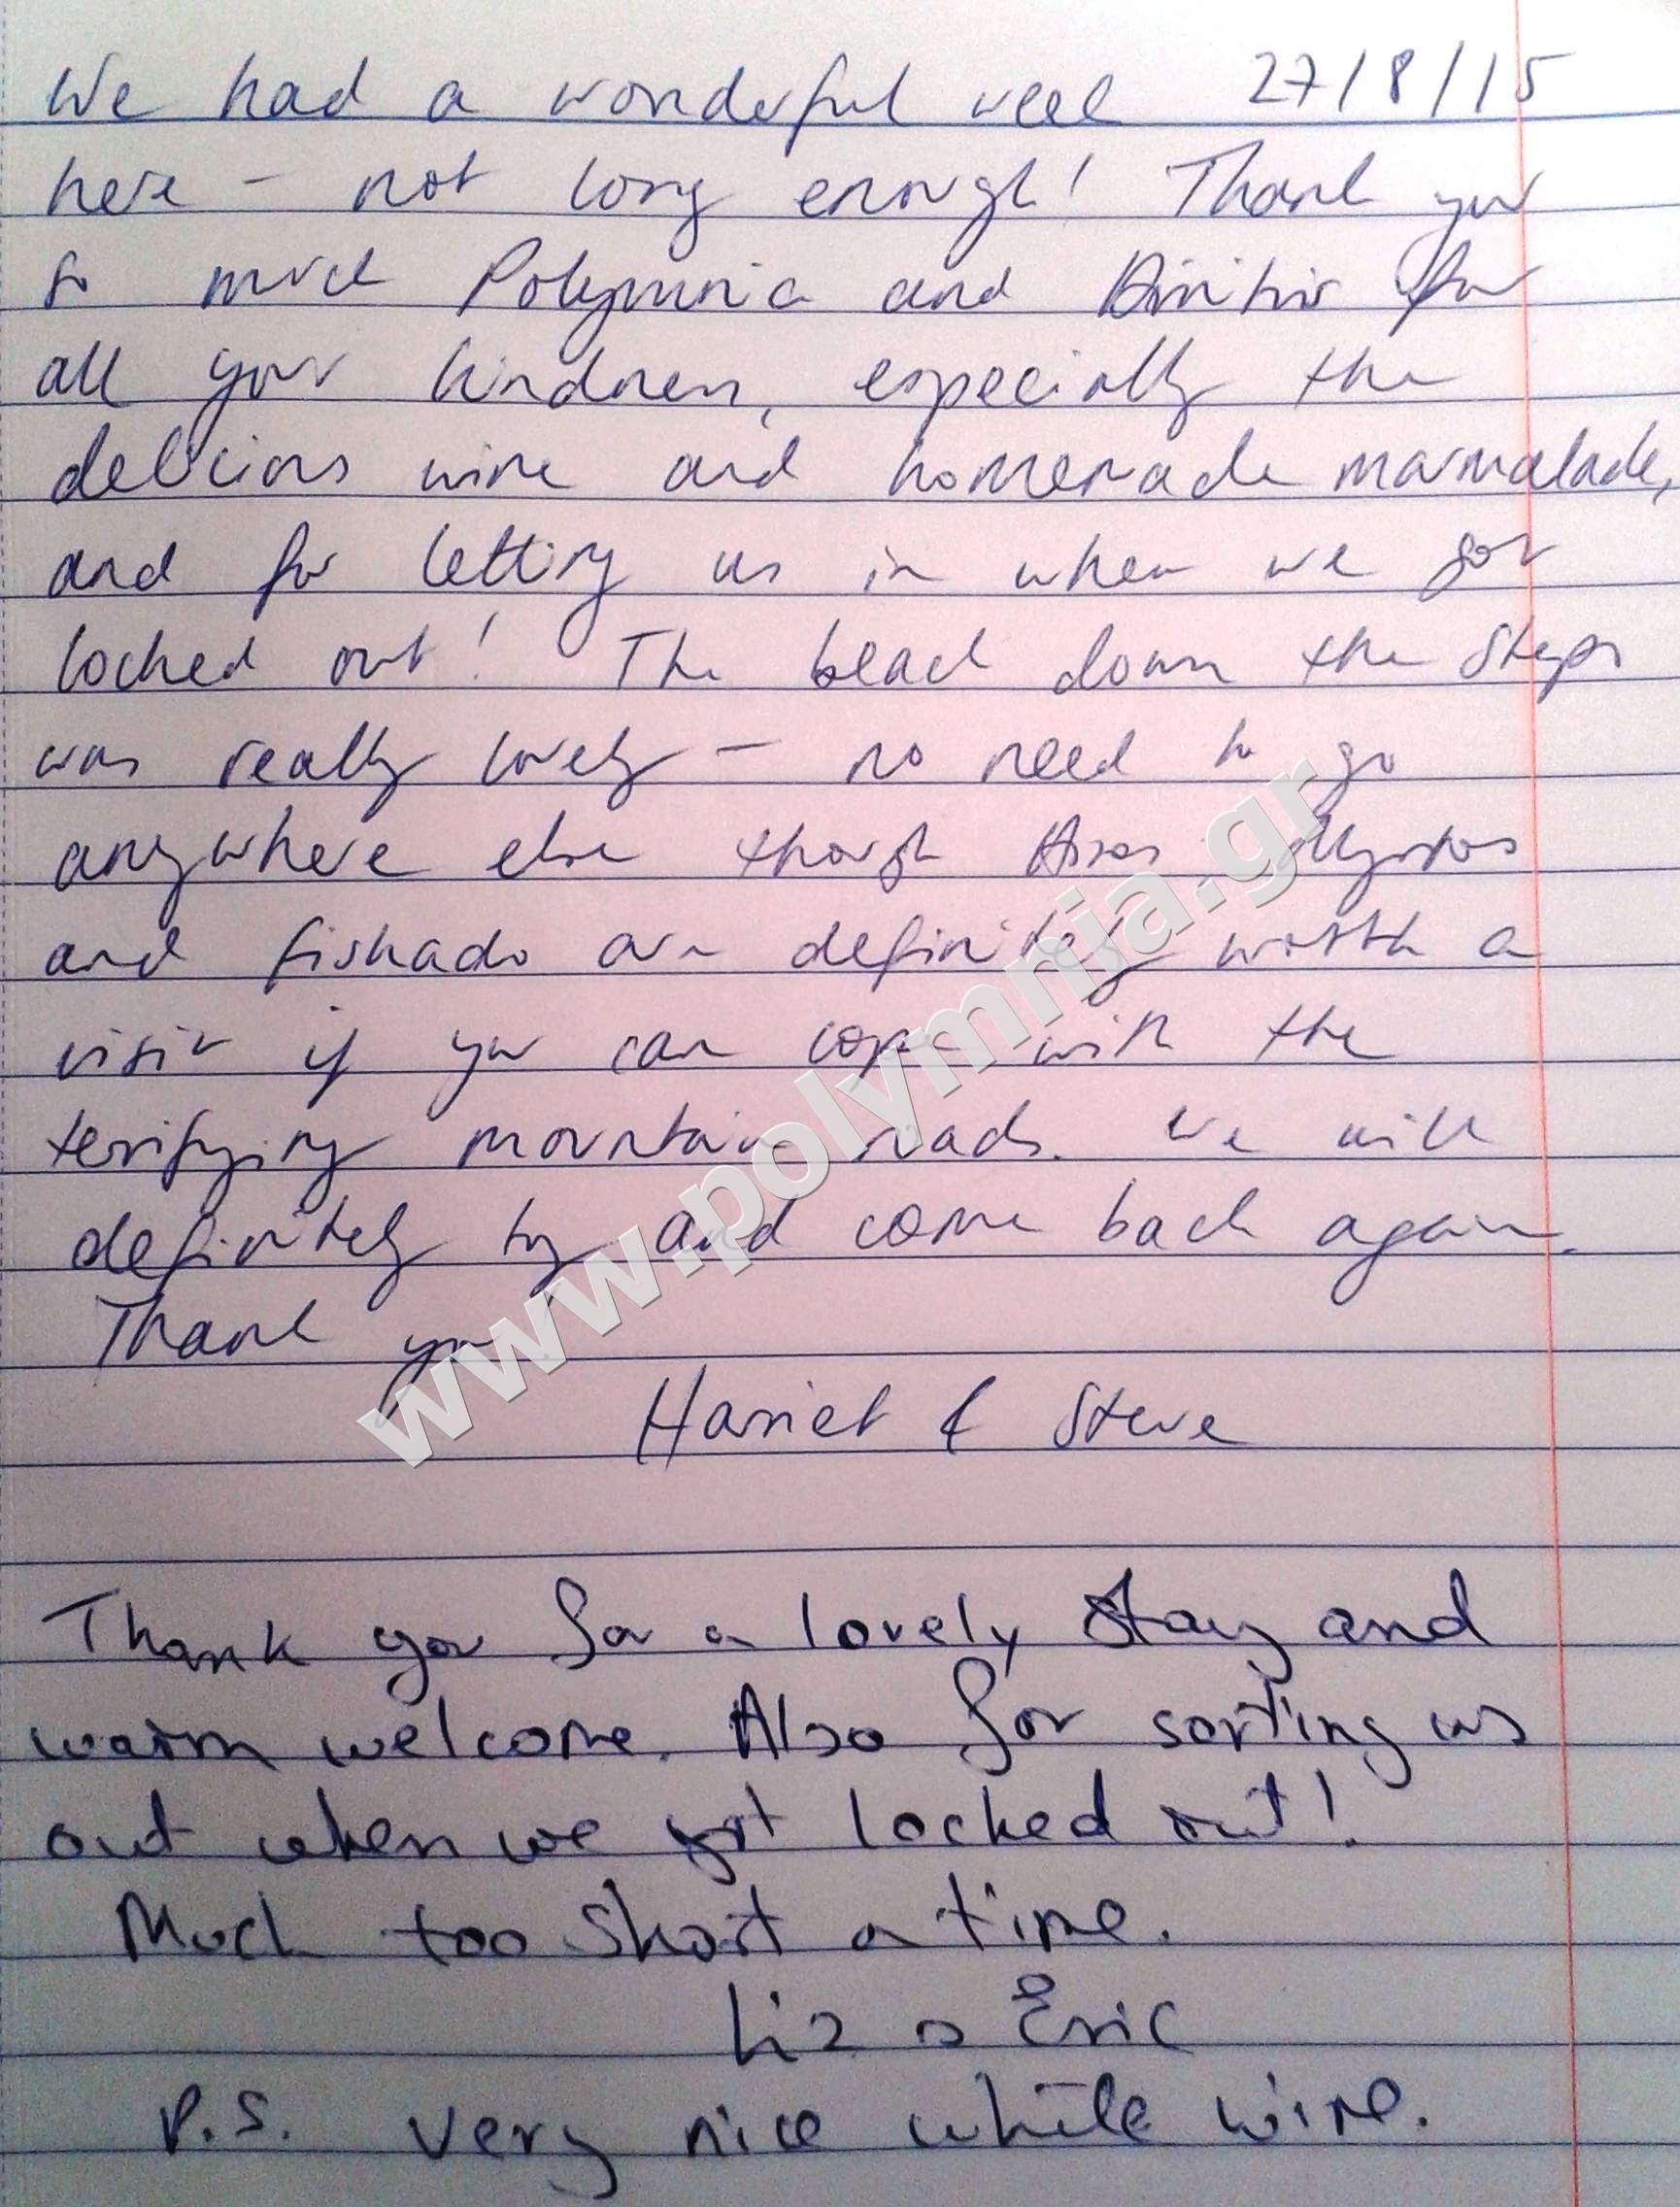 We had a wonderful week 27/8/15
here - not long enough! Thank you
so much Polymnia and Dimitris for
all your kindness, especially the
delicious wine and homemade marmalade,
and for letting us in when we got
locked out! The beach down the steps
was really lovely - no need to go
anywhere else though Assos, Myrtos
and Fiskado are definitely worth a
visit if you can cope with the
terrifying mountain roads. We will
definitely try and come back again.
Thank you
Harriet & Steve
Thank you for a lovely stay and
warm welcome. Also for sorting us
out when we got locked out!
Much too short a time.
Liz & Eric
P.S. very nice white wine.
www.polymnia.gr